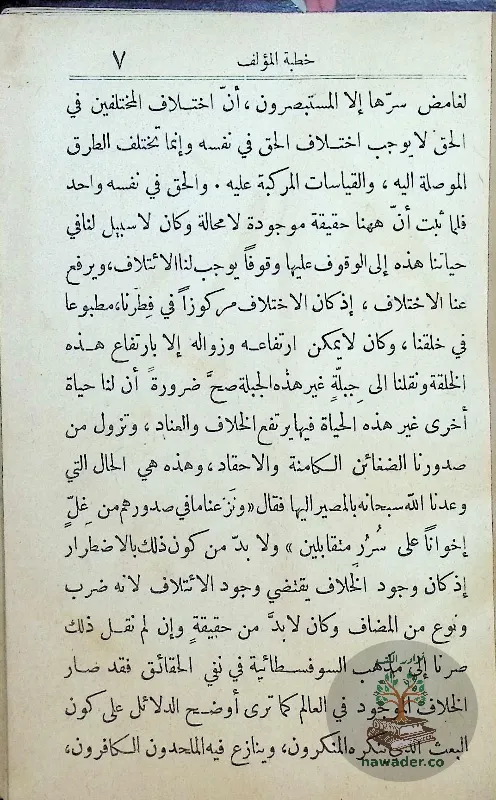 خطبة المؤلف ٧
لغامض سرّها إلا المستبصرون، أنّ اختلاف المختلفين في
الحق لا يوجب اختلاف الحق في نفسه وإنما تختلف الطرق
الموصلة اليه، والقياسات المركبة عليه. والحق في نفسه واحد
فلما ثبت أنّ ههنا حقيقة موجودة لا محالة وكان لا سبيل لنا في
حياتنا هذه إلى الوقوف عليها وقوفاً يوجب لنا الائتلاف، ويرفع
عنا الاختلاف، إذ كان الاختلاف مركوزاً في فِطَرنا، مطبوعا
في خلقنا، وكان لا يمكن ارتفاعه وزواله إلا بارتفاع هذه
الخلقة ونقلنا الى جِبلّةٍ غير هذه الجبلة صحَّ ضرورةً أن لنا حياة
أخرى غير هذه الحياة فيها يرتفع الخلاف والعناد، وتزول من
صدورنا الضغائن الكامنة والاحقاد، وهذه هي الحال التي
وعدنا الله سبحانه بالمصير اليها فقال «ونَزعنا ما في صدورهم من غِلّ
إخواناً على سُرُر متقابلين» ولا بدّ من كون ذلك بالاضطرار
إذ كان وجود الخلاف يقتضي وجود الائتلاف لانه ضرب
ونوع من المضاف وكان لا بدَّ من حقيقةٍ وإن لم نقل ذلك
صرنا إلى مذهب السوفسطائية في نفي الحقائق فقد صار
الخلاف الموجود في العالم كما ترى أوضح الدلائل على كون
البعث الذي ينكره المنكرون، وينازع فيه الملحدون الكافرون،
نوادر الكتب
hawader.co